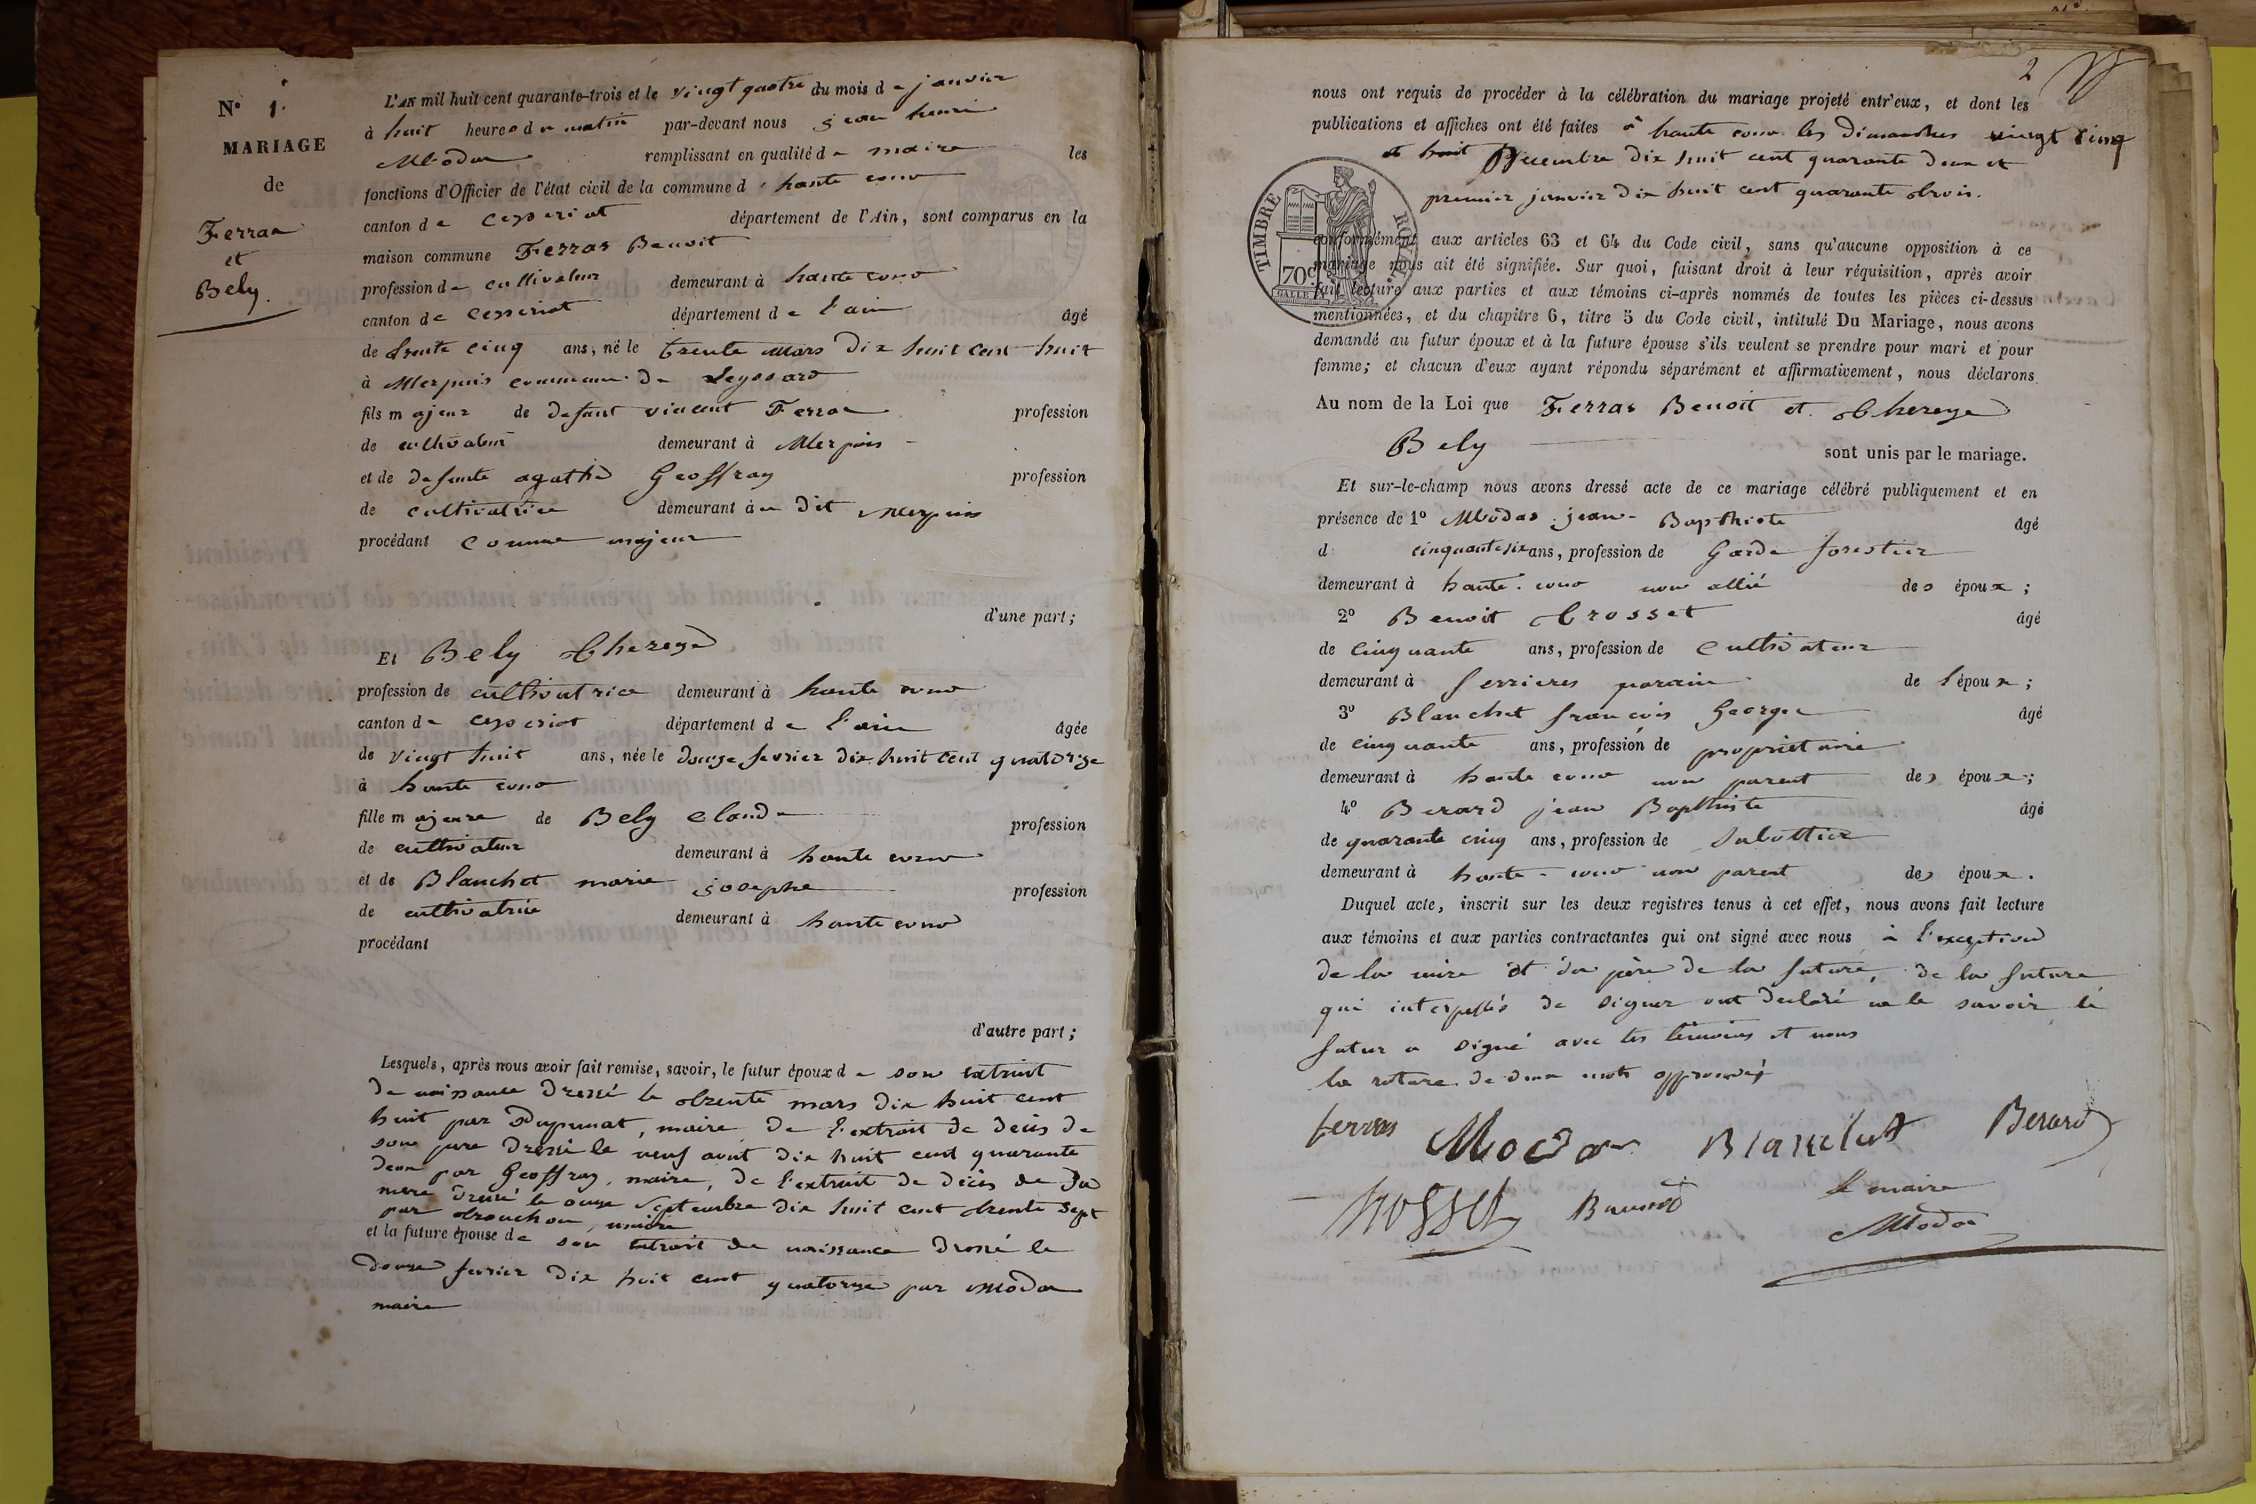 N° 1.
MARIAGE
de
Ferras
et
Bely.
L'AN mil huit cent quarante-trois et le vingt quatre du mois de janvier
à huit heures du matin par-devant nous jean henri
Modas remplissant en qualité de maire les
fonctions d'Officier de l'état civil de la commune d haute cour
canton de ceyseriat département de l'Ain, sont comparus en la
maison commune Ferras Benoit
profession de cultivateur demeurant à haute cour
canton de ceyseriat département de l'ain âgé
de trente cinq ans, né le trente mars dix huit cent huit
à Merpuis commune de Leyssard
fils majeur de defunt vincent Ferras profession
de cultivateur demeurant à Merpuis
et de defunte agathe Geoffray profession
de cultivatrice demeurant au dit merpuis
procédant comme majeur
d'une part;
Et Bely Thereze
profession de cultivatrice demeurant à haute cour
canton de ceyseriat département de l'ain âgée
de vingt huit ans, née le douze fevrier dix huit cent quatorze
à haute cour
fille majeure de Bely claude profession
de cultivateur demeurant à haute cour
et de Blanchet marie josephe profession
de cultivatrice demeurant à haute cour
procédant
d'autre part;
Lesquels, après nous avoir fait remise, savoir, le futur époux de son extrait
de naissance dressé le trente mars dix huit cent
huit par Dupunat, maire de l'extrait de décès de
son pere dressé le neuf août dix huit cent quarante
deux par Geoffray, maire, de l'extrait de décès de sa
mere dressé le onze septembre dix huit cent trente sept
par trouchon, maire
et la future épouse de son extrait de naissance dressé le
douze fevrier dix huit cent quatorze par modas
maire
2
nous ont requis de procéder à la célébration du mariage projeté entr'eux, et dont les
publications et affiches ont été faites à haute cour les dimanches vingt cinq
et huit Decembre dix huit cent quarante deux et
premier janvier dix huit cent quarante trois.
TIMBRE ROYAL
70c
conformément aux articles 63 et 64 du Code civil, sans qu'aucune opposition à ce
mariage nous ait été signifiée. Sur quoi, faisant droit à leur réquisition, après avoir
fait lecture aux parties et aux témoins ci-après nommés de toutes les pièces ci-dessus
mentionnées, et du chapitre 6, titre 5 du Code civil, intitulé Du Mariage, nous avons
demandé au futur époux et à la future épouse s'ils veulent se prendre pour mari et pour
femme; et chacun d'eux ayant répondu séparément et affirmativement, nous déclarons
Au nom de la Loi que Ferras Benoit et Thereze
Bely sont unis par le mariage.
Et sur-le-champ nous avons dressé acte de ce mariage célébré publiquement et en
présence de 1° Modas jean Bapthiste âgé
d cinquante six ans, profession de Garde forestier
demeurant à haute cour non allié des époux;
2° Benoit Trosset âgé
de cinquante ans, profession de cultivateur
demeurant à ferrieres parain de l'époux;
3° Blanchet francois George âgé
de cinquante ans, profession de proprietaire
demeurant à haute cour non parent des époux;
4° Berard jean Bapthiste âgé
de quarante cinq ans, profession de Sabottier
demeurant à haute cour non parent des époux.
Duquel acte, inscrit sur les deux registres tenus à cet effet, nous avons fait lecture
aux témoins et aux parties contractantes qui ont signé avec nous à l'exception
de la mère et du père de la future, de la future
qui interpellés de signer ont declaré ne le savoir le
futur a signé avec les témoins et nous
la rature de deux mots approuvés
ferras Modas Blanchet Berard
trosset Benoit le maire
Modas